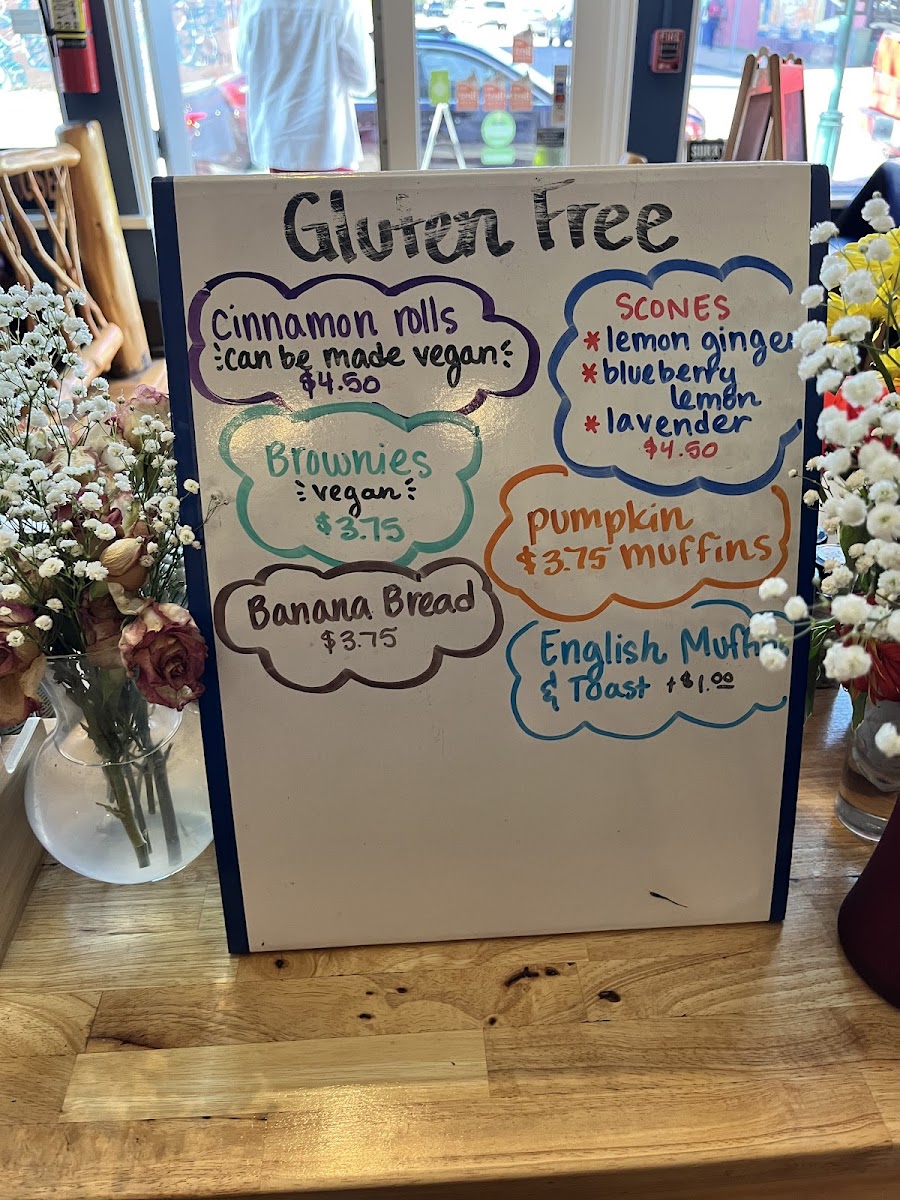 Gluten Free
Cinnamon rolls
can be made vegan
$4.50
Brownies
vegan
$3.75
Banana Bread
$3.75
SCONES
* lemon ginger
* blueberry
lemon
* lavender
$4.50
pumpkin
$3.75 muffins
English Muffins
& Toast +$1.00